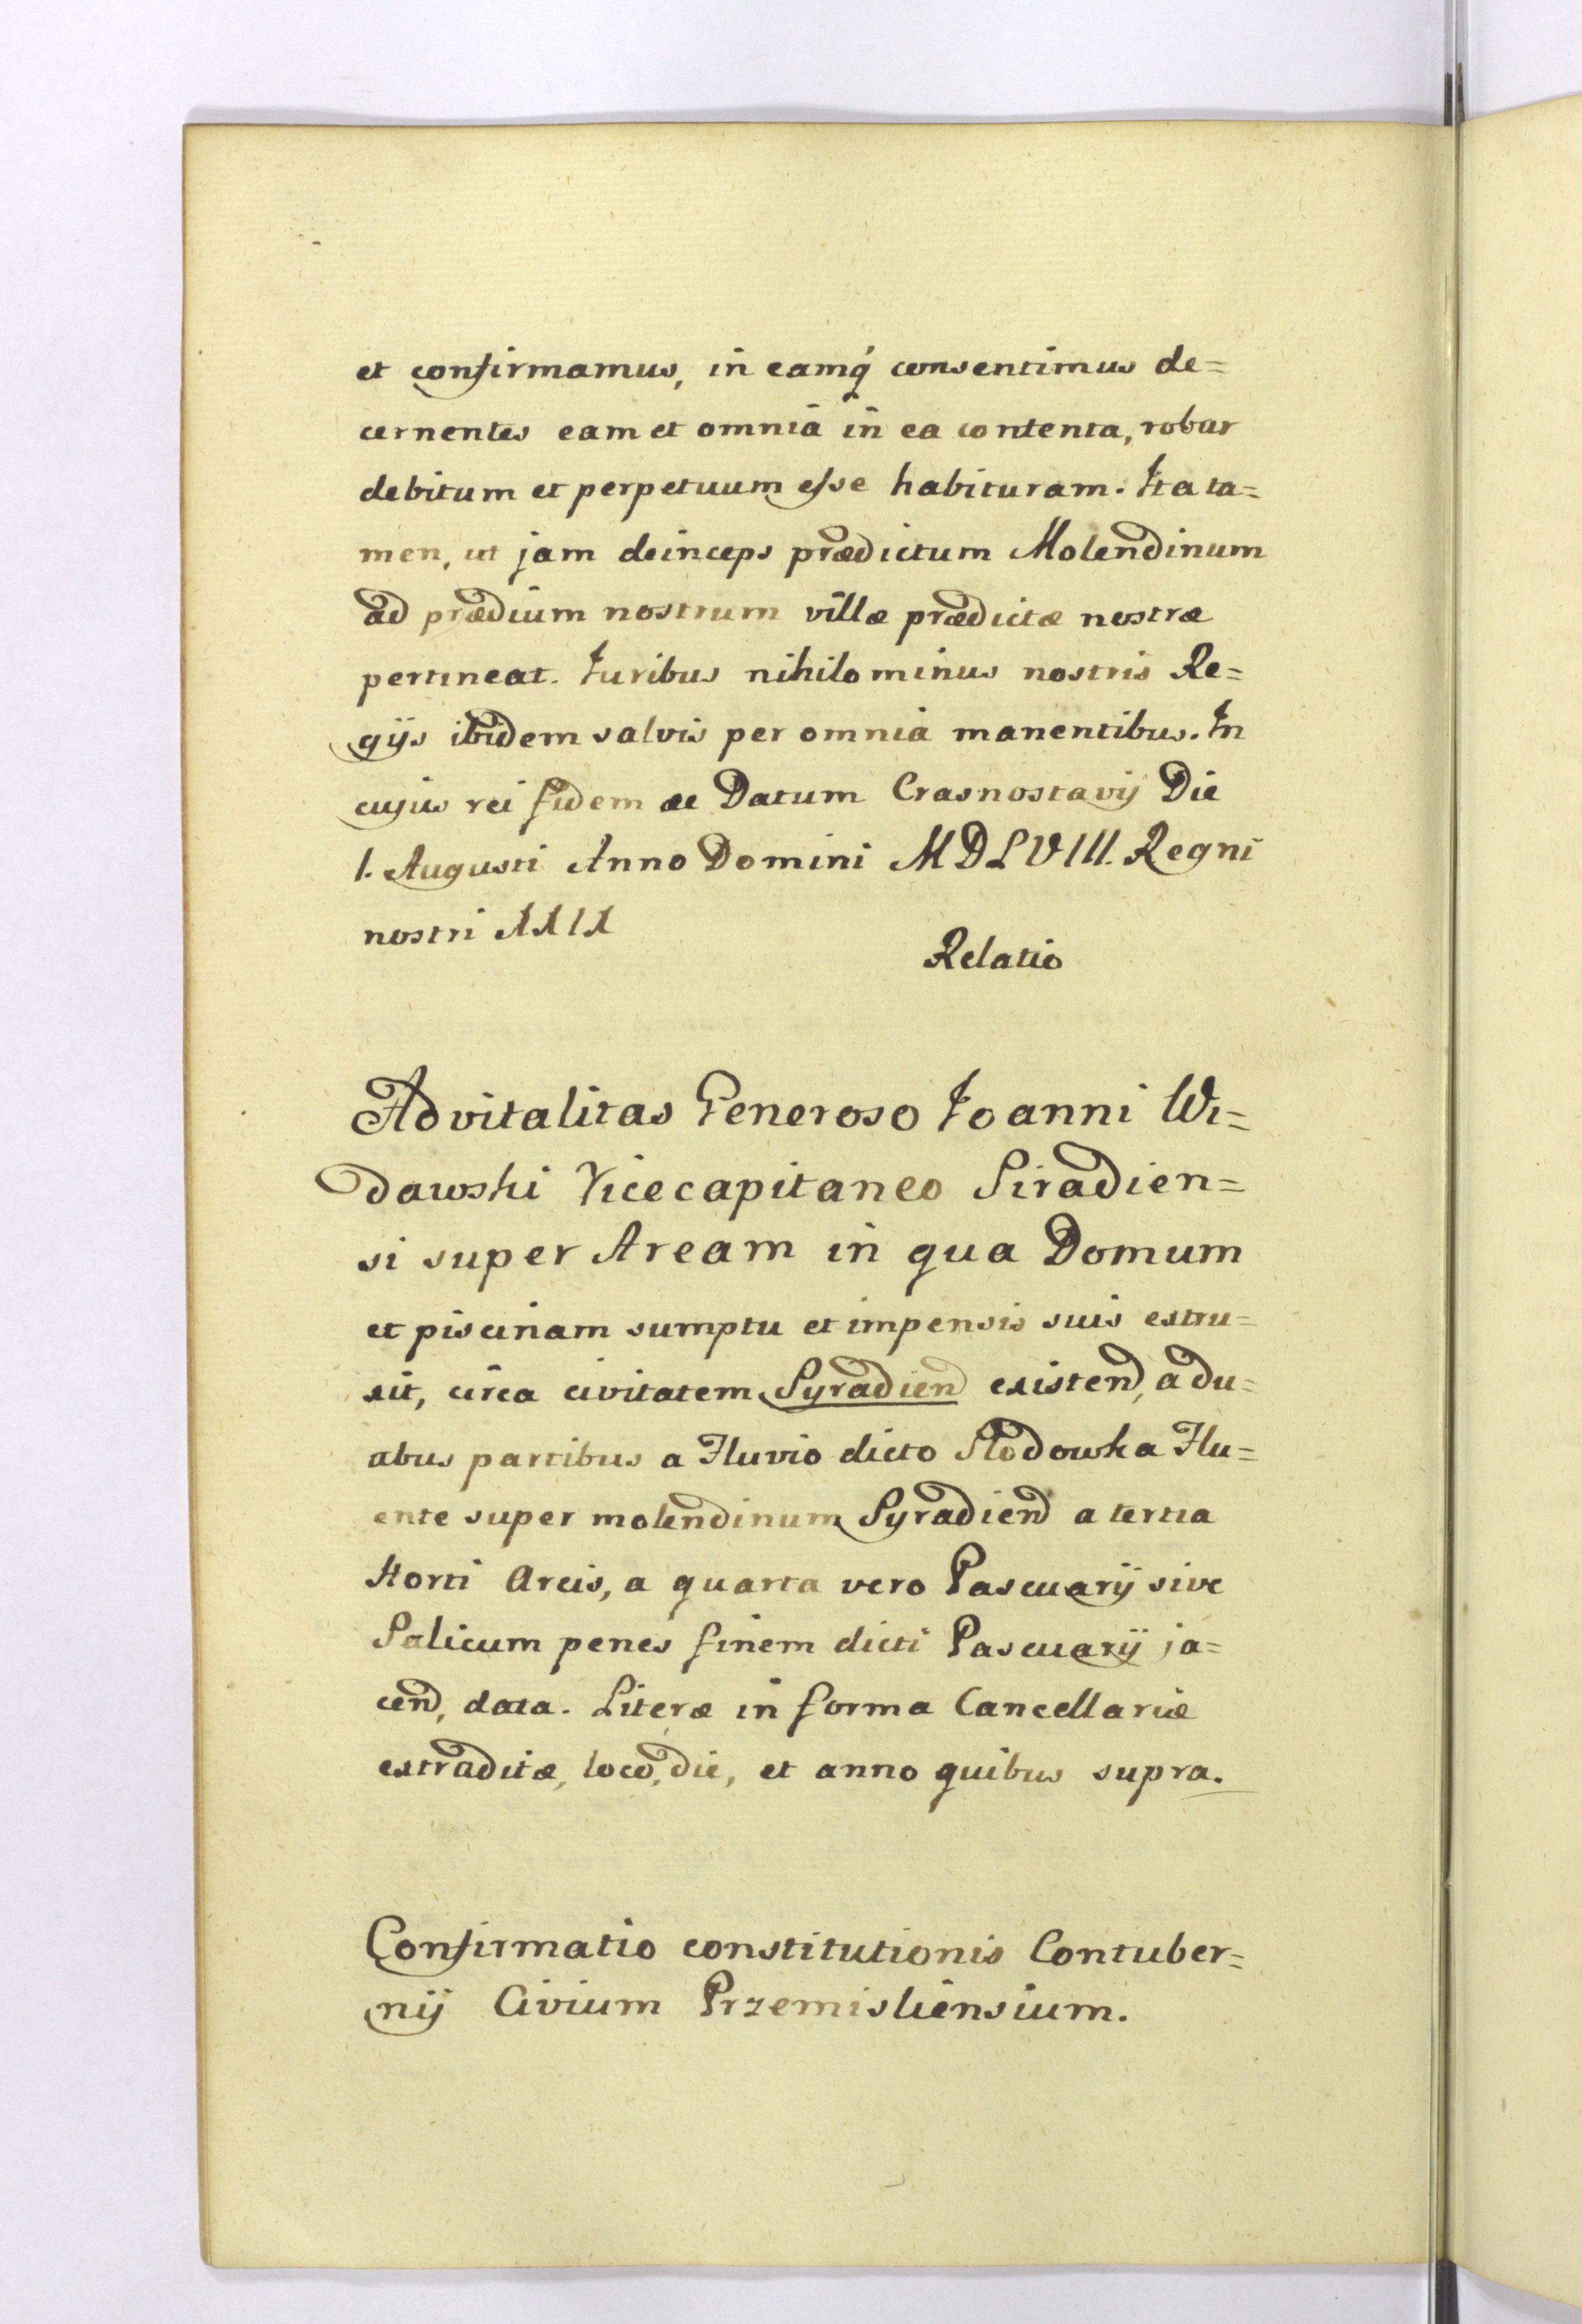 et confirmamus, in eamq́ consentimus de=
cernentes eam et omnia in ea contenta, robur
debitum et perpetuum esse habituram. Ita ta=
men, ut jam deinceps prædictum Molendinum
ad prædium nostrum villæ prædictæ nostræ
pertineat. Iuribus nihilominus nostris Re=
gijs ibidem salvis per omnia manentibus. In
cujus rei fidem &c Datum Crasnostavij Die
1. Augusti Anno Domini MDLVIII. Regni
nostri XXIX
Relatio
Advitalitas Generoso Ioanni Wi=
dawski Vicecapitaneo Siradien=
si super Aream in qua Domum
et piscinam sumptu et impensis suis extru=
xit, circa civitatem Syradien existend, a du=
abus partibus a Fluvio dicto Słodowka Flu=
ente super molendinum Syradiend a tertia
Horti Arcis, a quarta vero Pascuarij sive
Salicum penes finem dicti Pascuarij ja=
cend, data. Literæ in forma Cancellariæ
extraditæ, loco, die, et anno quibus supra.
Confirmatio constitutionis Contuber=
nij Civium Przemisliensium.